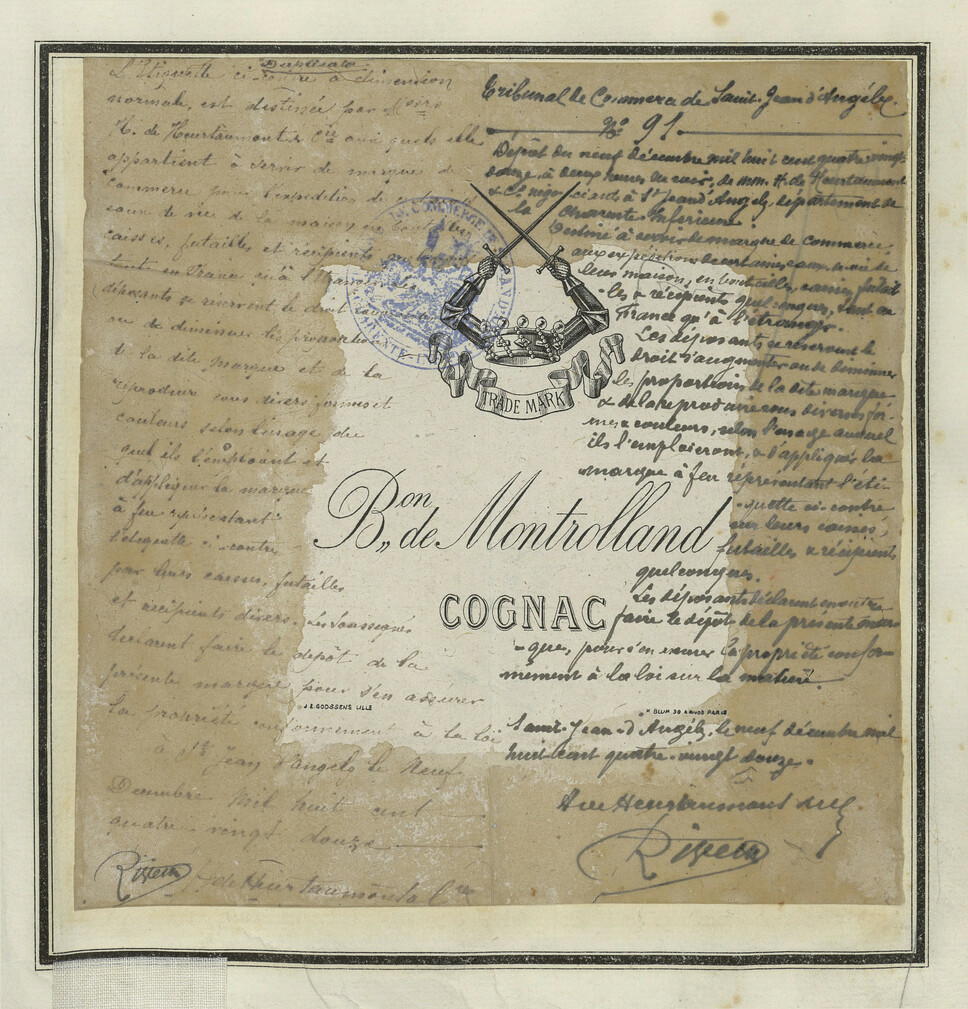 Duplicata
L'Etiquette ci-contre à dimension
normale, est destinée par Messrs
H. de Heurtaumont & Cie aux quels elle
appartient à servir de marque de
commerce pour l'expédition de
eaux de vie de la maison en bouteilles
caisses, futailles et récipients
tant en France qu'à l'Etranger. Les
déposants se reservent le droit
ou de diminuer les proportions
de la dite marque et de la
reproduire sous divers formes et
couleurs selon l'usage du
quel ils l'emploient et
d'appliquer la marque
à feu représentant
l'étiquette ci-contre
par leurs caisses, futailles
et récipients divers. Les soussignés
declarent faire le dépôt de la
présente marque pour s'en assurer
la propriété conformément à la loi
à St Jean d'Angely le Neuf
Décembre Mil huit cent
quatre vingt douze
H. de Heurtaumont & Cie
Tribunal de Commerce de Saint-Jean d'Angély.
No 91.
Dépôt du neuf décembre mil huit cent quatre vingt
douze, à deux heures du soir, de mm. H. de Heurtaumont
& Cie négociants à St Jean d'Angély, département de
la Charente-Inférieure
Destiné à servir de marque de commerce
aux expéditions de certaines eaux-de-vie de
leur maison, en bouteilles, caisses, futail
-les & récipients quelconques, tant en
France qu'à l'étranger.
Les déposants se réservent le
droit d'augmenter ou de diminuer
les proportions de la dite marque
& de la reproduire sous diverses for-
mes & couleurs, selon l'usage auquel
ils l'emploieront, & d'appliquer la
marque à feu représentant l'éti-
-quette ci-contre
sur leurs caisses,
futailles & récipients
quelconques.
Les déposants déclarent en outre
faire le dépôt de la présente mar-
-que, pour s'en assurer la propriété confor-
mément à la loi sur la matière.
Saint-Jean-d'Angély, le neuf décembre mil
huit cent quatre-vingt douze.
TRADE MARK
Bon de Montrolland
COGNAC
J. E. GOOSSENS LILLE